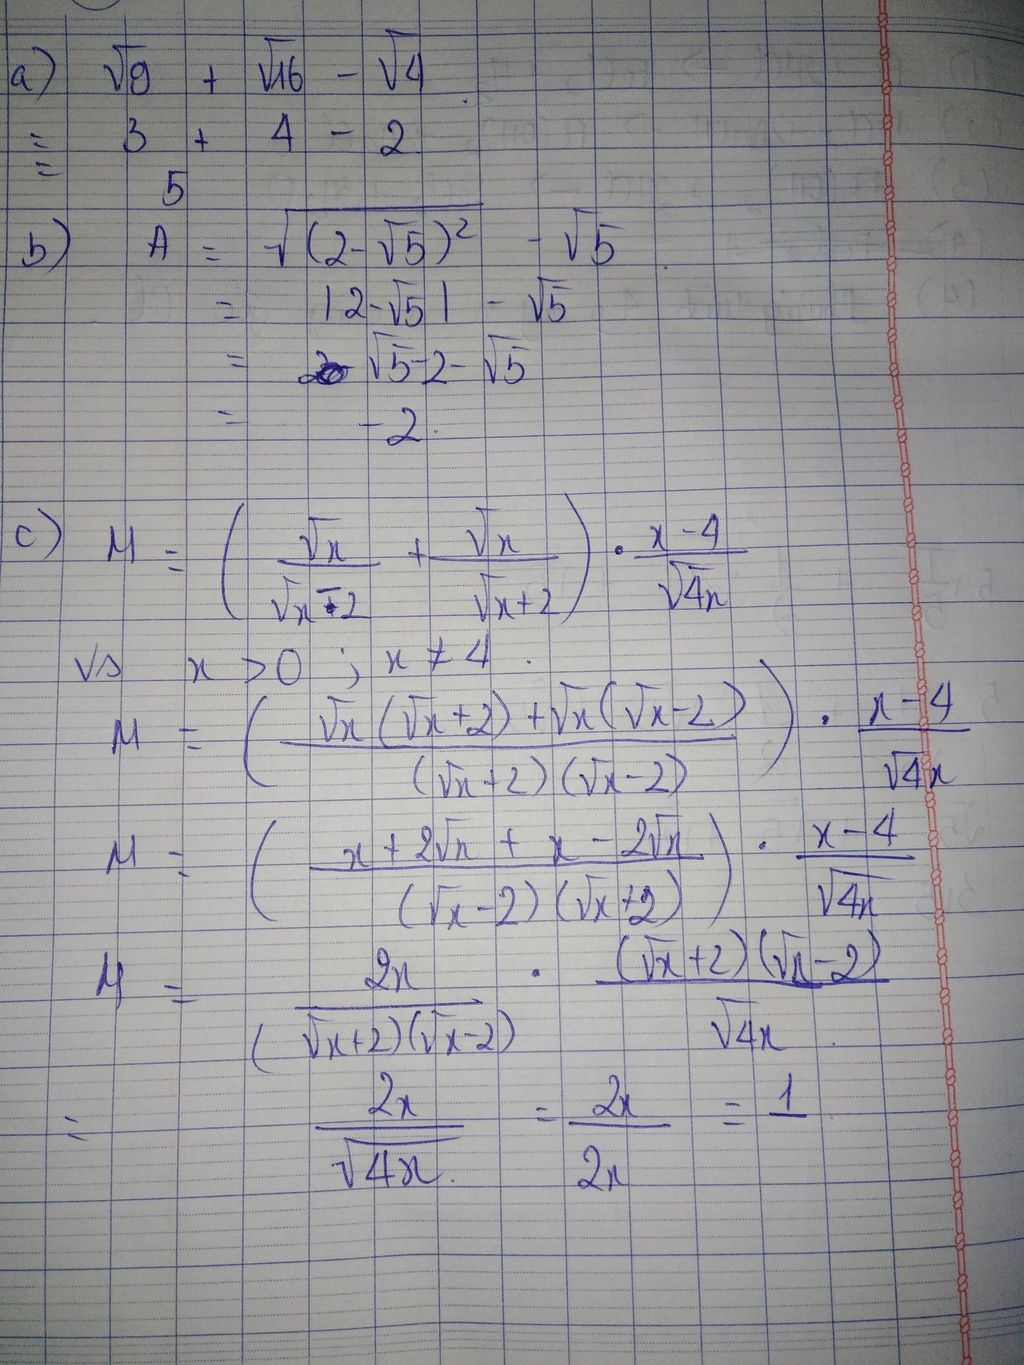 a) √9 + √16 - √4
= 3 + 4 - 2
= 5
b) A = √(2-√5)² - √5
= |2-√5| - √5
= √5-2-√5
= -2.
c) M = ( √x / √x-2 + √x / √x+2 ) . x-4 / √4x
Vs x > 0 ; x ≠ 4.
M = ( √x(√x+2)+√x(√x-2) / (√x+2)(√x-2) ) . x-4 / √4x
M = ( x+2√x + x - 2√x / (√x-2)(√x+2) ) . x-4 / √4x
M = 2x / (√x+2)(√x-2) . (√x+2)(√x-2) / √4x
= 2x / √4x. = 2x / 2x = 1